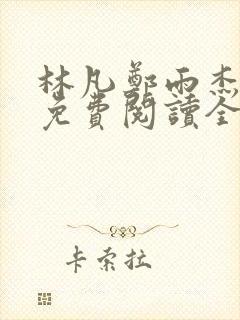 林凡鄭雨杰
免費閱讀全
卡索拉